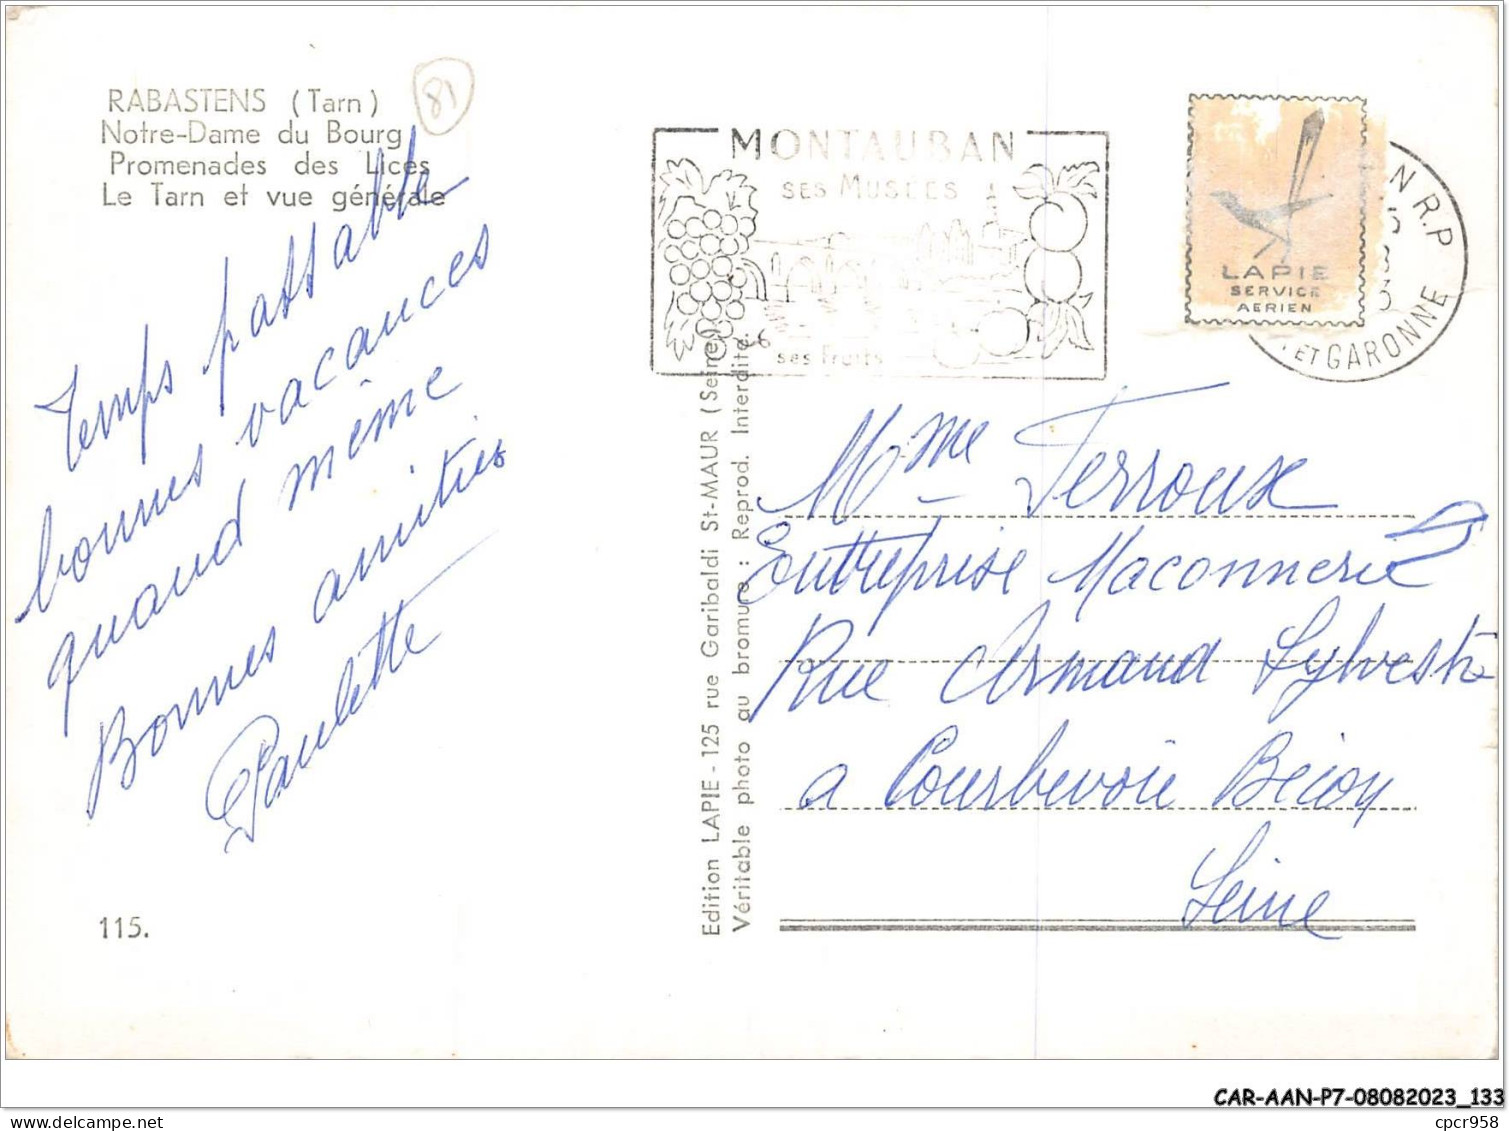 RABASTENS (Tarn)
81
Notre-Dame du Bourg
Promenades des Lices
Le Tarn et vue générale
Temps passable
bonnes vacances
quand même
Bonnes amitiés
Paulette
115.
Edition LAPIE - 125 rue Garibaldi St-MAUR (Seine)
Véritable photo au bromure : Reprod. Interdite.
MONTAUBAN
SES MUSÉES
ses Fruits
LAPIE
SERVICE
AERIEN
N R.P
ET GARONNE
Mme Terroux
Entreprise Maconnerie
Rue Armand Sylvestre
a Courbevoie Bécon
Seine
CAR-AAN-P7-08082023_133
delcampe.net
cpcr958